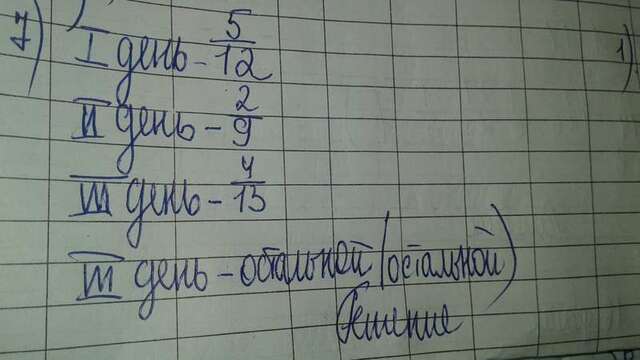 7) I день - 5/12
II день - 2/9
III день - 4/15
III день - остальной (остальной)
Решение
1)